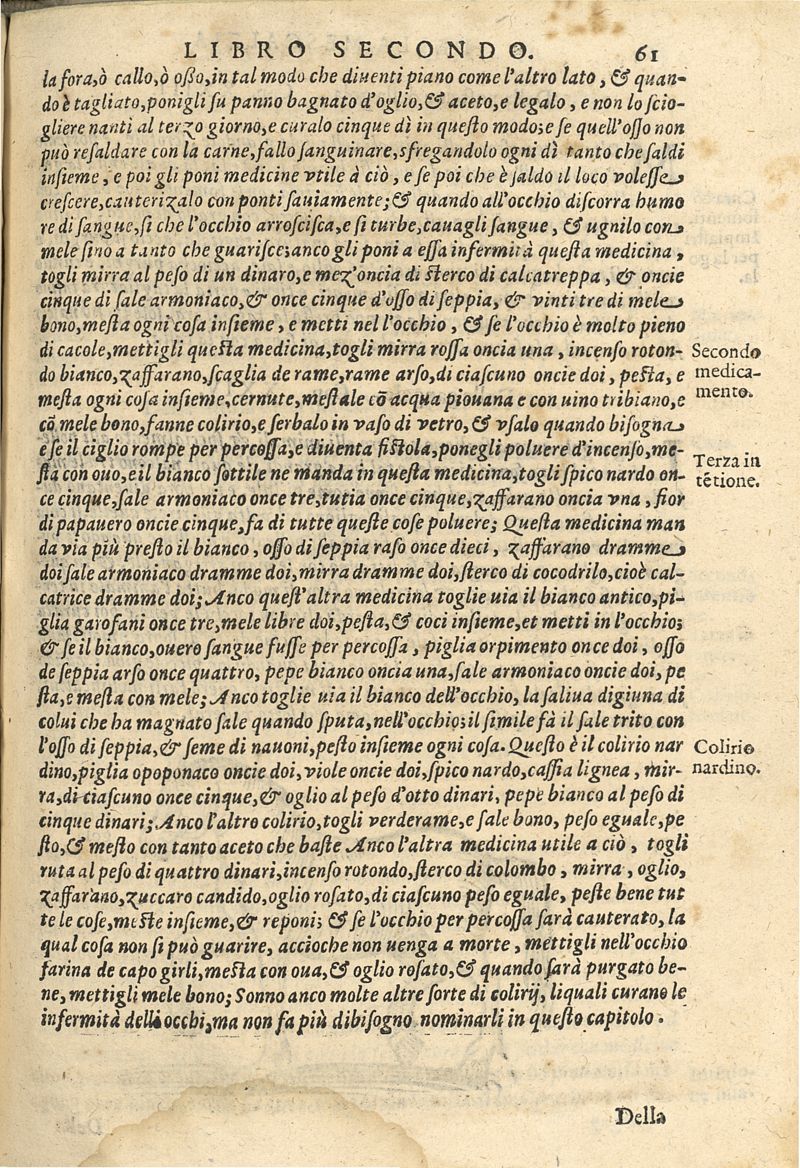 LIBRO SECONDO. 61
la fora, ò callo, ò oſſo, in tal modo che diuenti piano come l'altro lato, & quan-
do è tagliato, ponigli ſu panno bagnato d'oglio, & aceto, e legalo, e non lo ſcio-
gliere nanti al terzo giorno, e curalo cinque dì in queſto modo; e ſe quell'oſſo non
può reſaldare con la carne, fallo ſanguinare, sfregandolo ogni dì tanto che ſaldi
inſieme, e poi gli poni medicine vtile à ciò, e ſe poi che è ſaldo il loco voleſſe
creſcere, cauterizalo con ponti ſauiamente; & quando all'occhio diſcorra humo
re di ſangue, ſi che l'occhio arroſciſca, e ſi turbe, cauagli ſangue, & ugnilo con
mele ſino a tanto che guariſce; anco gli poni a eſſa infermità queſta medicina,
togli mirra al peſo di un dinaro, e mez'oncia di ſterco di calcatreppa, & oncie
cinque di ſale armoniaco, & once cinque d'oſſo di ſeppia, & vinti tre di mele
bono, meſta ogni coſa inſieme, e metti nel l'occhio, & ſe l'occhio è molto pieno
di cacole, mettigli queſta medicina, togli mirra roſſa oncia una, incenſo roton-
Secondo medica-mento.
do bianco, zaffarano, ſcaglia de rame, rame arſo, di ciaſcuno oncie doi, peſta, e
meſta ogni coſa inſieme, cernute, meſtale cō acqua piouana e con uino tribiano, e
cō mele bono, fanne colirio, e ſerbalo in vaſo di vetro, & vſalo quando biſogna
e ſe il ciglio rompe per percoſſa, e diuenta fiſtola, ponegli poluere d'incenſo, me-
Terza in tētione.
ſta con ouo, e il bianco ſottile ne manda in queſta medicina, togli ſpico nardo on-
ce cinque, ſale armoniaco once tre, tutia once cinque, zaffarano oncia vna, fior
di papauero oncie cinque, fa di tutte queſte coſe poluere; Queſta medicina man
da via più preſto il bianco, oſſo di ſeppia raſo once dieci, zaffarano dramme
doi ſale armoniaco dramme doi, mirra dramme doi, ſterco di cocodrilo, cioè cal-
catrice dramme doi; Anco queſt'altra medicina toglie uia il bianco antico, pi-
glia garofani once tre, mele libre doi, peſta, & coci inſieme, et metti in l'occhio;
& ſe il bianco, ouero ſangue fuſſe per percoſſa, piglia orpimento once doi, oſſo
de ſeppia arſo once quattro, pepe bianco oncia una, ſale armoniaco oncie doi, pe
ſta, e meſta con mele; Anco toglie uia il bianco dell'occhio, la ſaliua digiuna di
colui che ha magnato ſale quando ſputa, nell'occhio; il ſimile fà il ſale trito con
l'oſſo di ſeppia, & ſeme di nauoni, peſto inſieme ogni coſa. Queſto è il colirio nar
Colirio nardino.
dino, piglia opoponaco oncie doi, viole oncie doi, ſpico nardo, caſſia lignea, mir-
ra, di ciaſcuno once cinque, & oglio al peſo d'otto dinari, pepe bianco al peſo di
cinque dinari; Anco l'altro colirio, togli verderame, e ſale bono, peſo eguale, pe
ſto, & meſto con tanto aceto che baſte Anco l'altra medicina utile a ciò, togli
ruta al peſo di quattro dinari, incenſo rotondo, ſterco di colombo, mirra, oglio,
zaffarano, zuccaro candido, oglio roſato, di ciaſcuno peſo eguale, peſte bene tut
te le coſe, meſte inſieme, & reponi; & ſe l'occhio per percoſſa ſarà cauterato, la
qual coſa non ſi può guarire, accioche non uenga a morte, mettigli nell'occhio
farina de capo girli, meſta con oua, & oglio roſato, & quando ſarà purgato be-
ne, mettigli mele bono; Sonno anco molte altre ſorte di colirij, liquali curano le
infermità delli occhi, ma non fa più dibiſogno nominarli in queſto capitolo.
Della